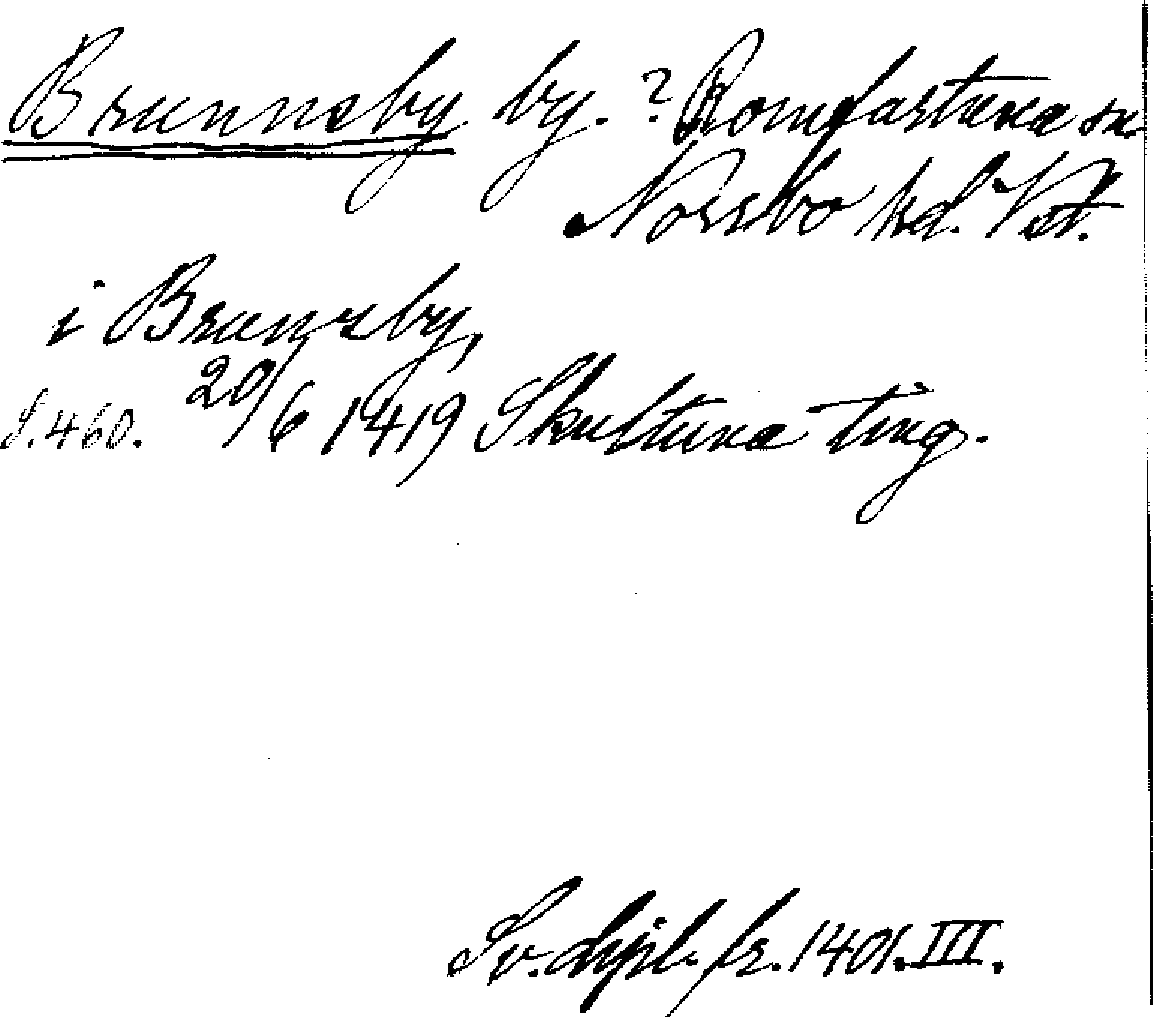 Brunnsby by. ? Romfartuna sn
Norrbo hd. Vstl.
i Brunsby,
S. 460. 20/6 1419 Skultuna ting.
Sv. dipl. fr. 1401. III.